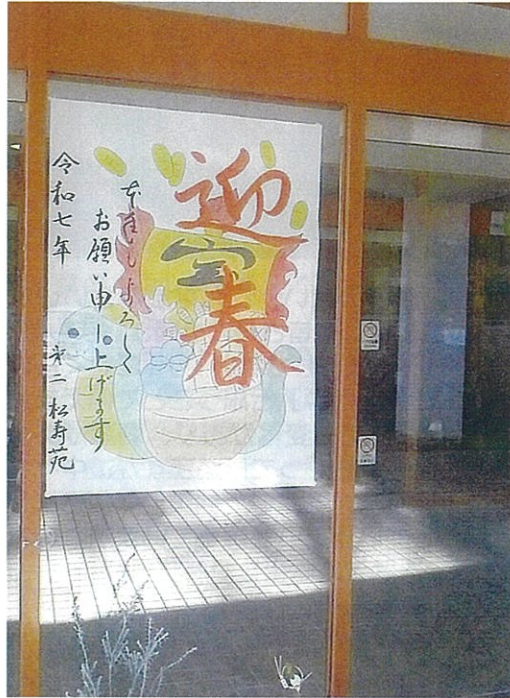 迎春
宝
本年もよろしく
お願い申し上げます
令和七年
第二松寿苑